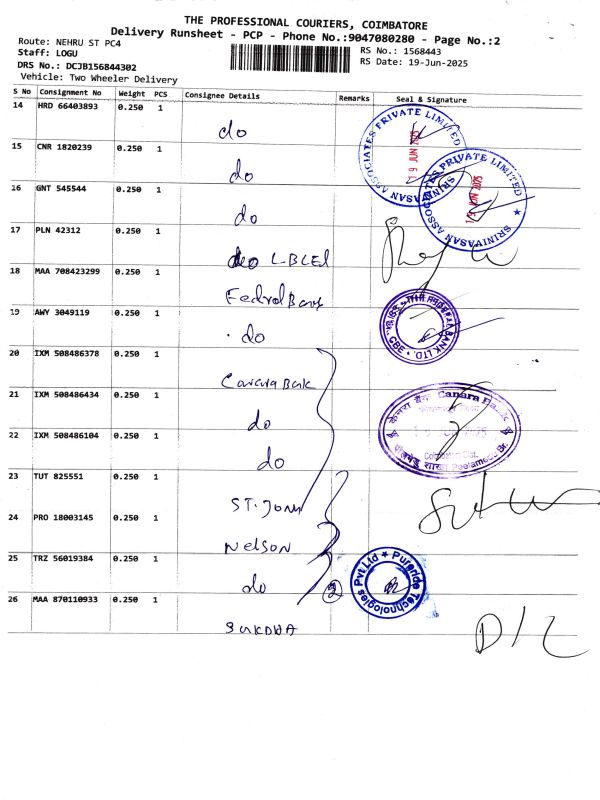 THE PROFESSIONAL COURIERS, COIMBATORE
Delivery Runsheet - PCP - Phone No.:9047080280 - Page No.:2
Route: NEHRU ST PC4
Staff: LOGU
DRS No.: DCJB156844302
Vehicle: Two Wheeler Delivery
RS No.: 1568443
RS Date: 19-Jun-2025
S No Consignment No Weight PCS Consignee Details Remarks Seal & Signature
14 HRD 66403893 0.250 1 do
15 CNR 1820239 0.250 1 do
16 GNT 545544 0.250 1 do
17 PLN 42312 0.250 1 do
18 MAA 708423299 0.250 1
19 AWY 3049119 0.250 1 do
20 IXM 508486378 0.250 1 Canara Bank
21 IXM 508486434 0.250 1 do
22 IXM 508486104 0.250 1 do
23 TUT 825551 0.250 1 ST. John
24 PRO 18003145 0.250 1 Nelson
25 TRZ 56019384 0.250 1 do 2
26 MAA 870110933 0.250 1
SRINIVASAN ASSOCIATES PRIVATE LIMITED
19 JUN 2025
SRINIVASAN ASSOCIATES PRIVATE LIMITED
19 JUN 2025
BANK LTD. CBE
केनरा बैंक Canara Bank
Coimbatore Dist.
Peelamedu Br.
Pureride Technologies Pvt Ltd